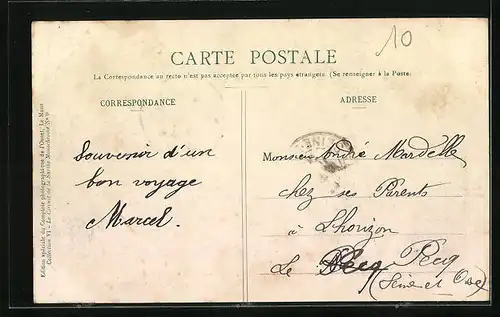 10
CARTE POSTALE
La Correspondance au recto n'est pas acceptée par tous les pays étrangers. (Se renseigner à la Poste.
CORRESPONDANCE
ADRESSE
Edition spéciale du Comptoir photographique de l'Ouest, Le Mans
Collection VI - Le Circuit de la Sarthe Monochrome No 9
Souvenir d'un
bon voyage
Marcel.
Monsieur André Mardelle
chez ses Parents
à Lhorizon
Le Pecq
(Seine et Oise)